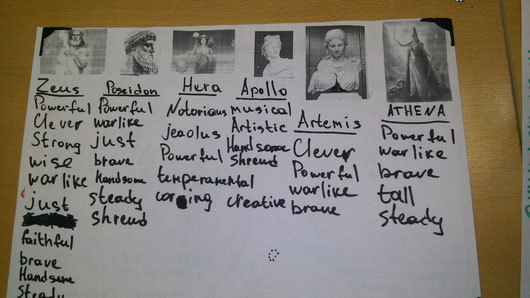 Zeus
Powerful
Clever
Strong
wise
warlike
just
faithful
brave
Handsome
Steady
Poseidon
Powerful
warlike
just
brave
Handsome
steady
shreud
Hera
Notorious
jeaolus
Powerful
temperamental
Apollo
musical
Artistic
Handsome
Shreud
creative
Artemis
Clever
Powerful
warlike
brave
ATHENA
Powerful
warlike
brave
tall
Steady